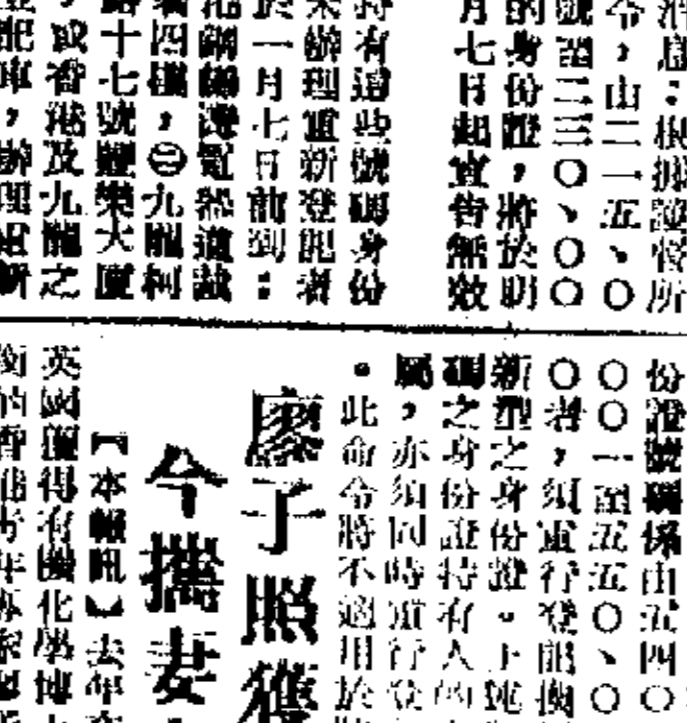 消息：根據督所
令，由二一五、〇
號至二三〇、〇〇
的身份證，將於明
月七日起宣告無效
持有這些號碼身份
來辦理重新登記者
於一月七日前到：
港銅鑼灣電道裁
四樓，㊂九龍柯
路十七號豐樂大廈
，或香港及九龍之
，辦理
份證號碼係由五四〇
〇〇一至五五〇、〇
〇者，須重行登記換
新型之身份證。上述
碼之身份證持有人的
屬，亦須同時重行登
。此命令將不適用於
廖子照獲
今攜妻
【本報訊】去年
英國獲得有機化學博
的香港青年專家